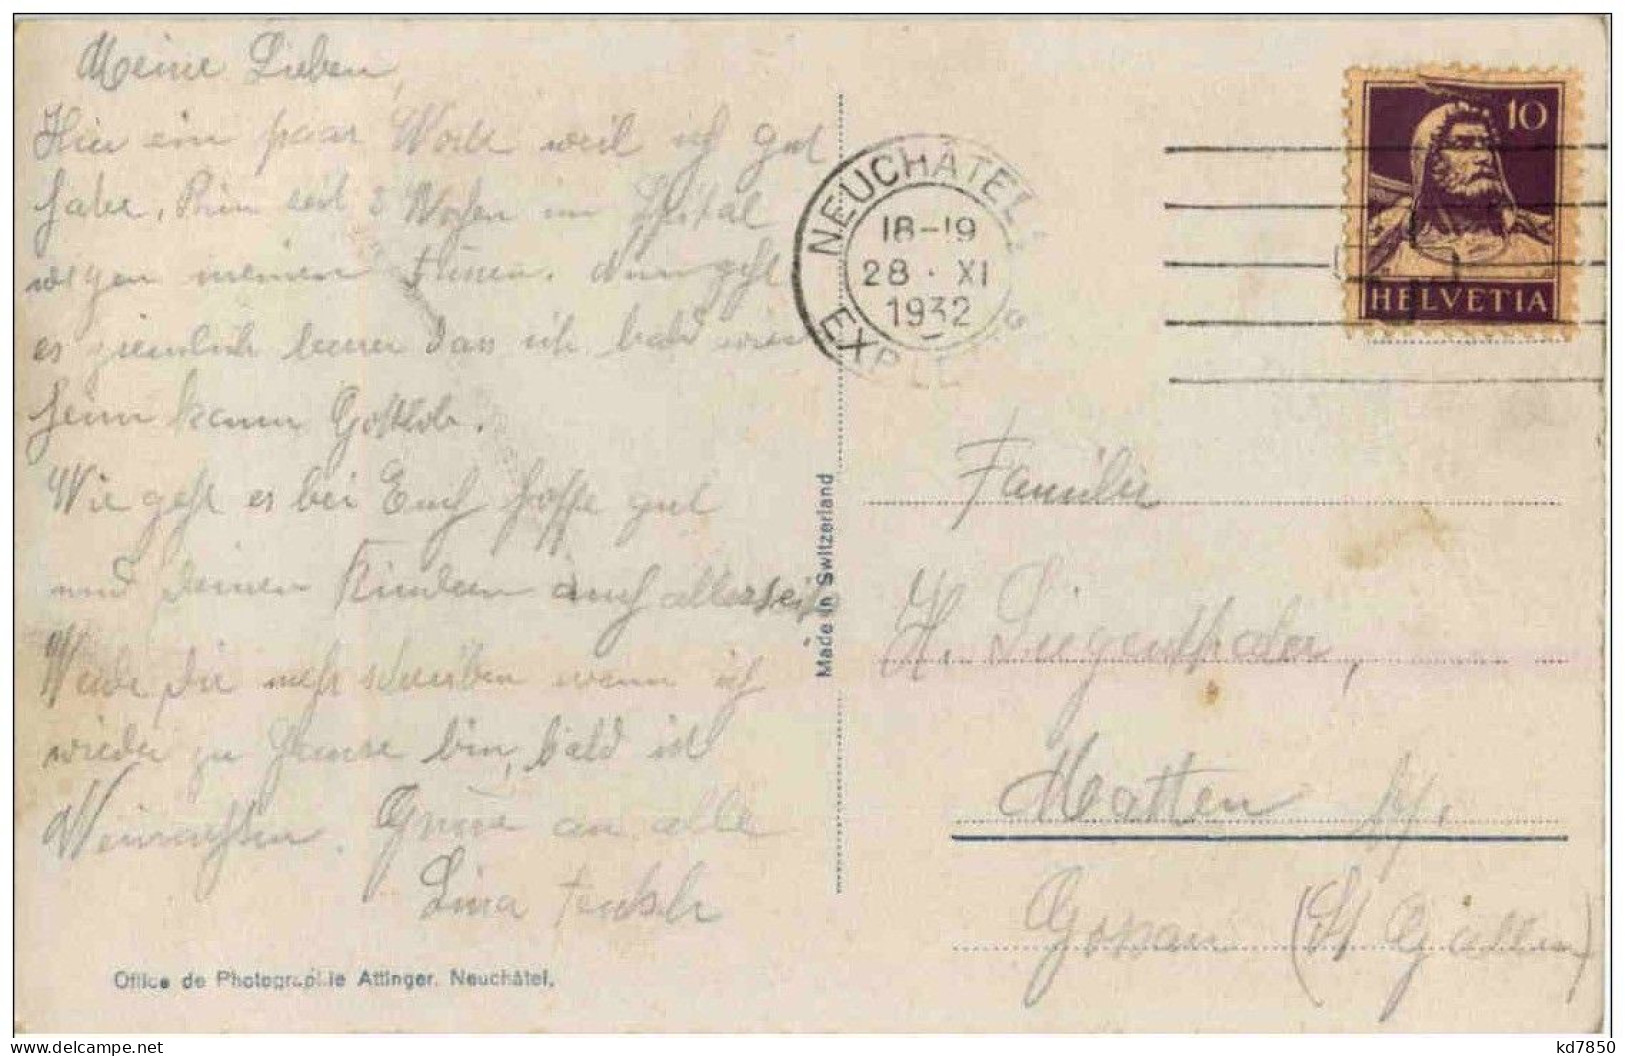 Meine Lieben,
Hier ein paar Worte weil ich Zeit
habe. Bin seit 3 Wochen im Spital
wegen meinen Füssen. Nun geht
es ziemlich besser dass ich bald wieder
heim kann Gottlob.
Wie geht es bei Euch hoffe gut
und deinen Kindern auch allerseits
Werde Dir mehr schreiben wenn ich
wieder zu Hause bin, bald ist
Weinachten. Grüsse an alle
Lina
Office de Photographie Attinger, Neuchâtel.
Made in Switzerland
NEUCHÂTEL
18-19
28.XI
1932
EXP. LE
10
HELVETIA
Familie
H. Siegenthaler,
Matten by.
Gossau (St Gallen)
kd7850